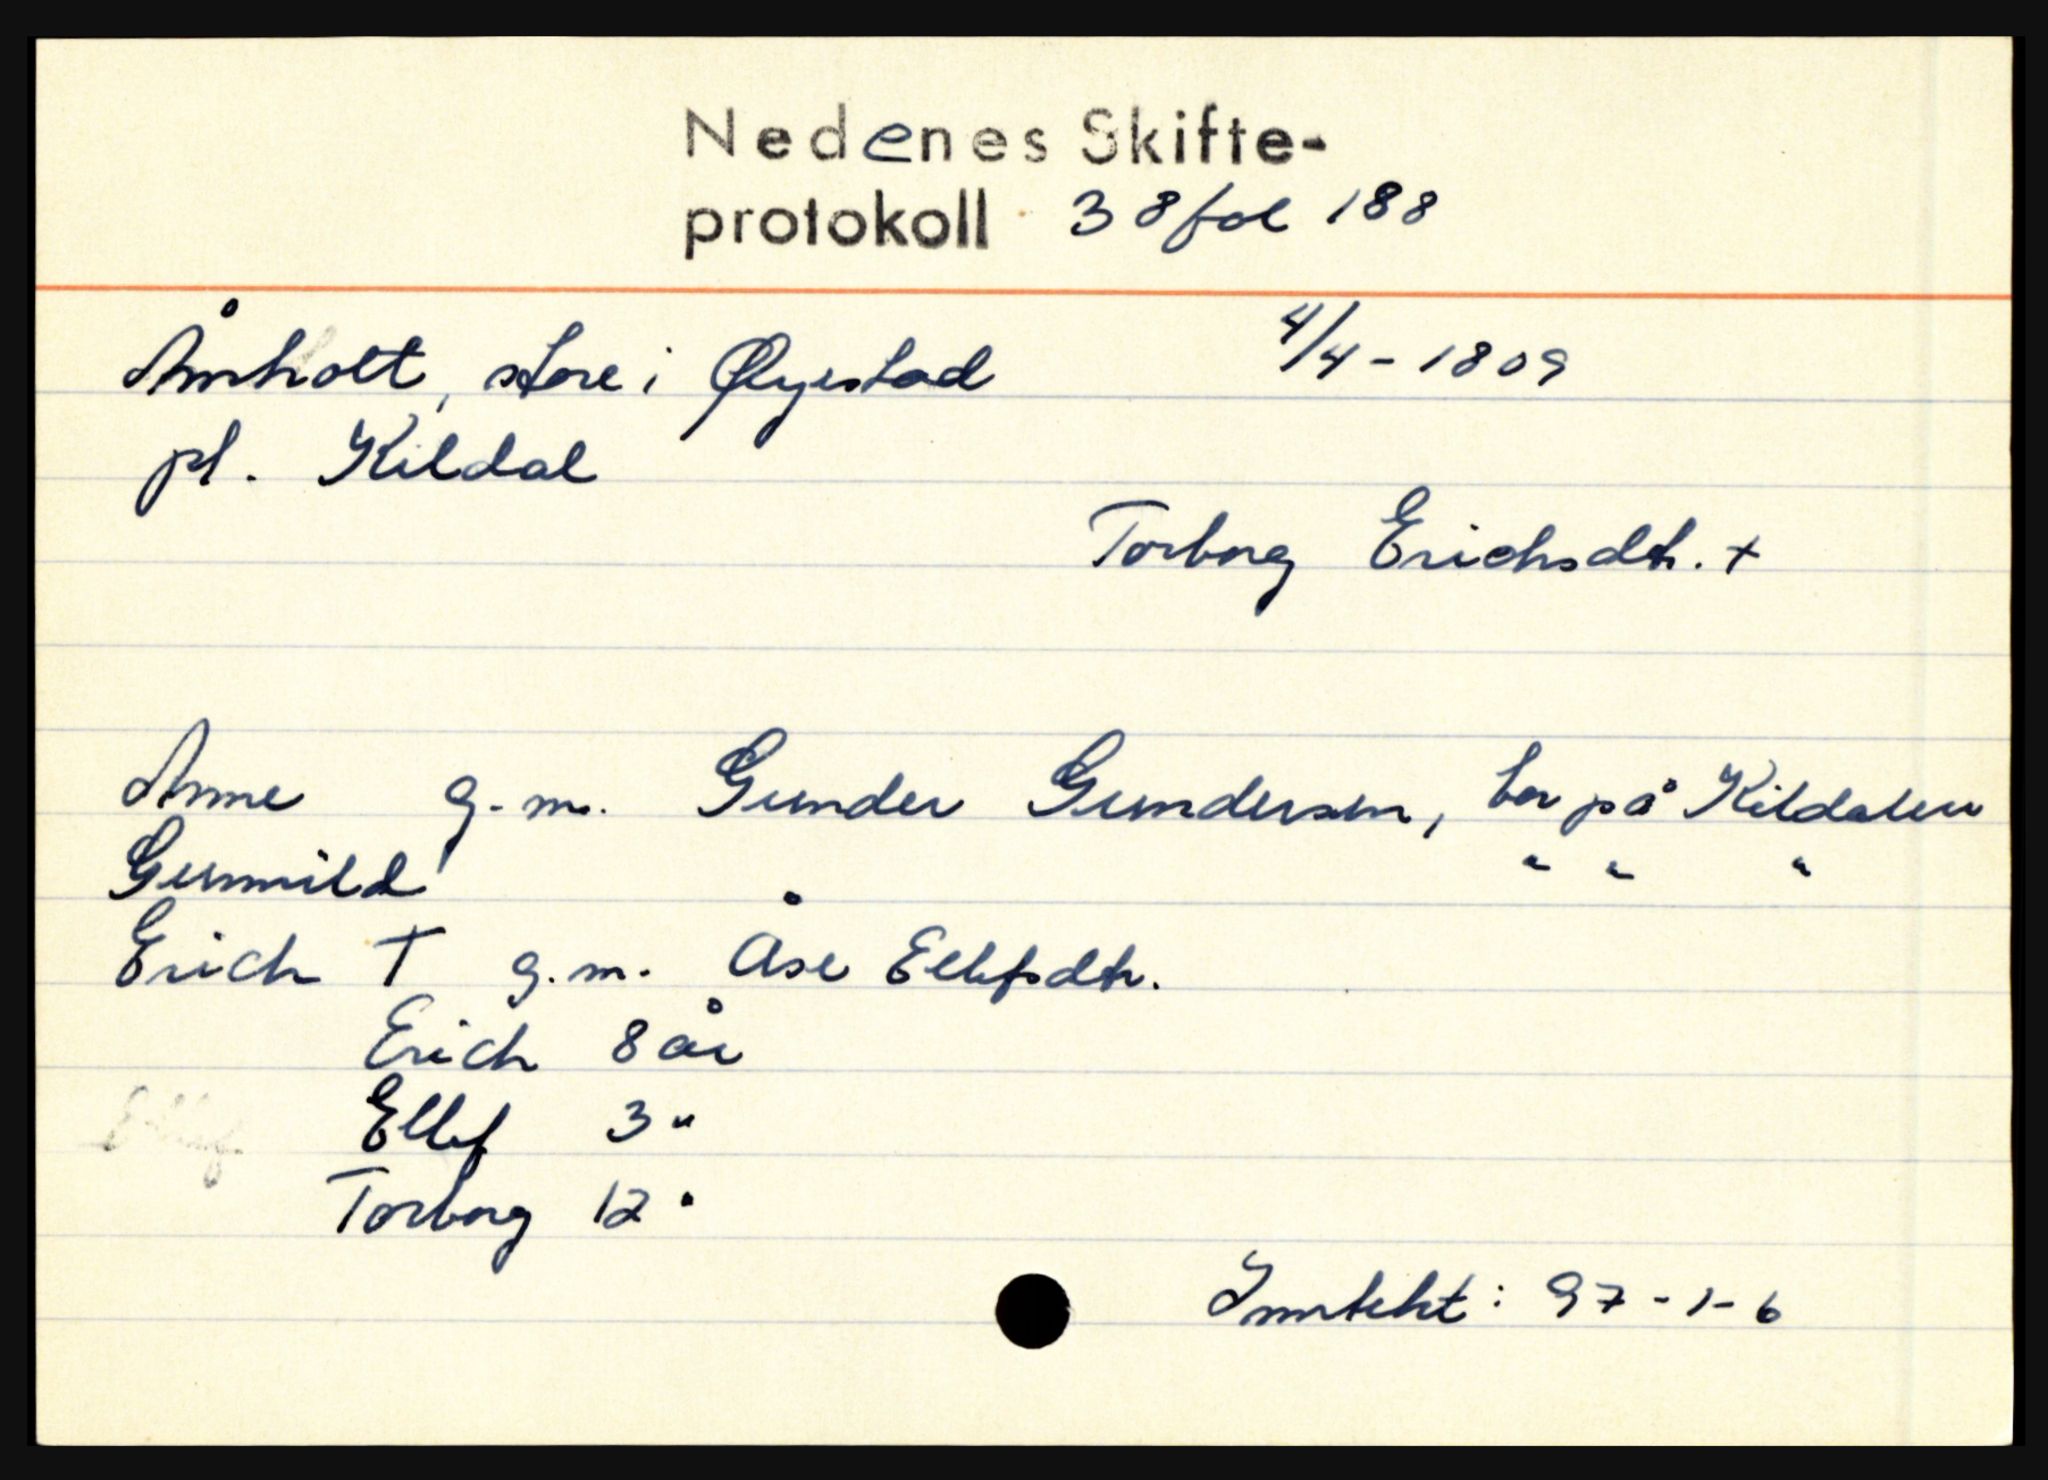 Nedenes Skifte-
protokoll 38 fol 188
Åmholt, store i Øyestad 4/4 - 1809
pl. Kildal
Torborg Erichsdtr. +
Anne g.m. Gunder Gundersen, bor på Kildalen
Gunnild " " "
Erich † g.m. Åse Ellefsdtr.
Erich 8 år
Ellef 3 "
Torborg 12 "
Inntekt: 97-1-6